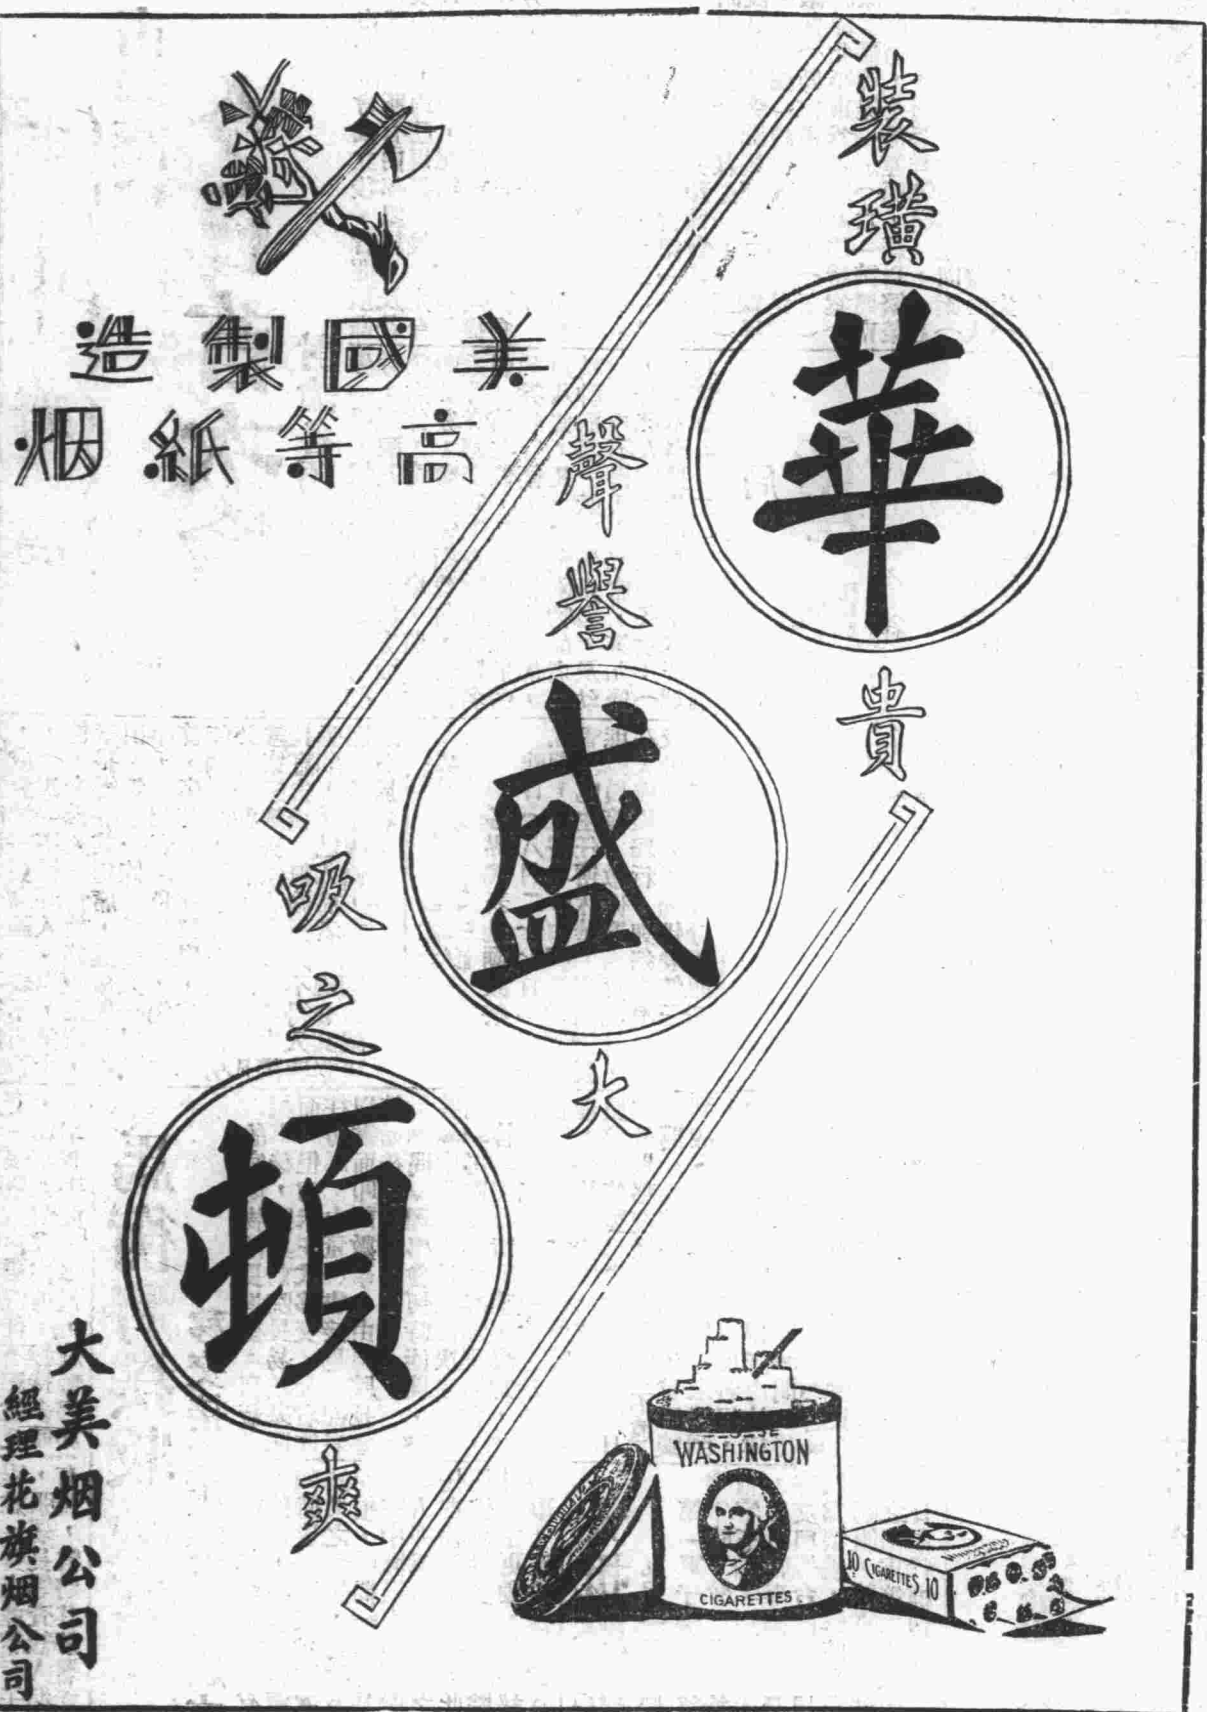 裝璜華貴
聲譽盛大
吸之頓爽
美國製造
高等紙烟
大美烟公司
經理花旗烟公司
WASHINGTON
CIGARETTES
10 CIGARETTES 10